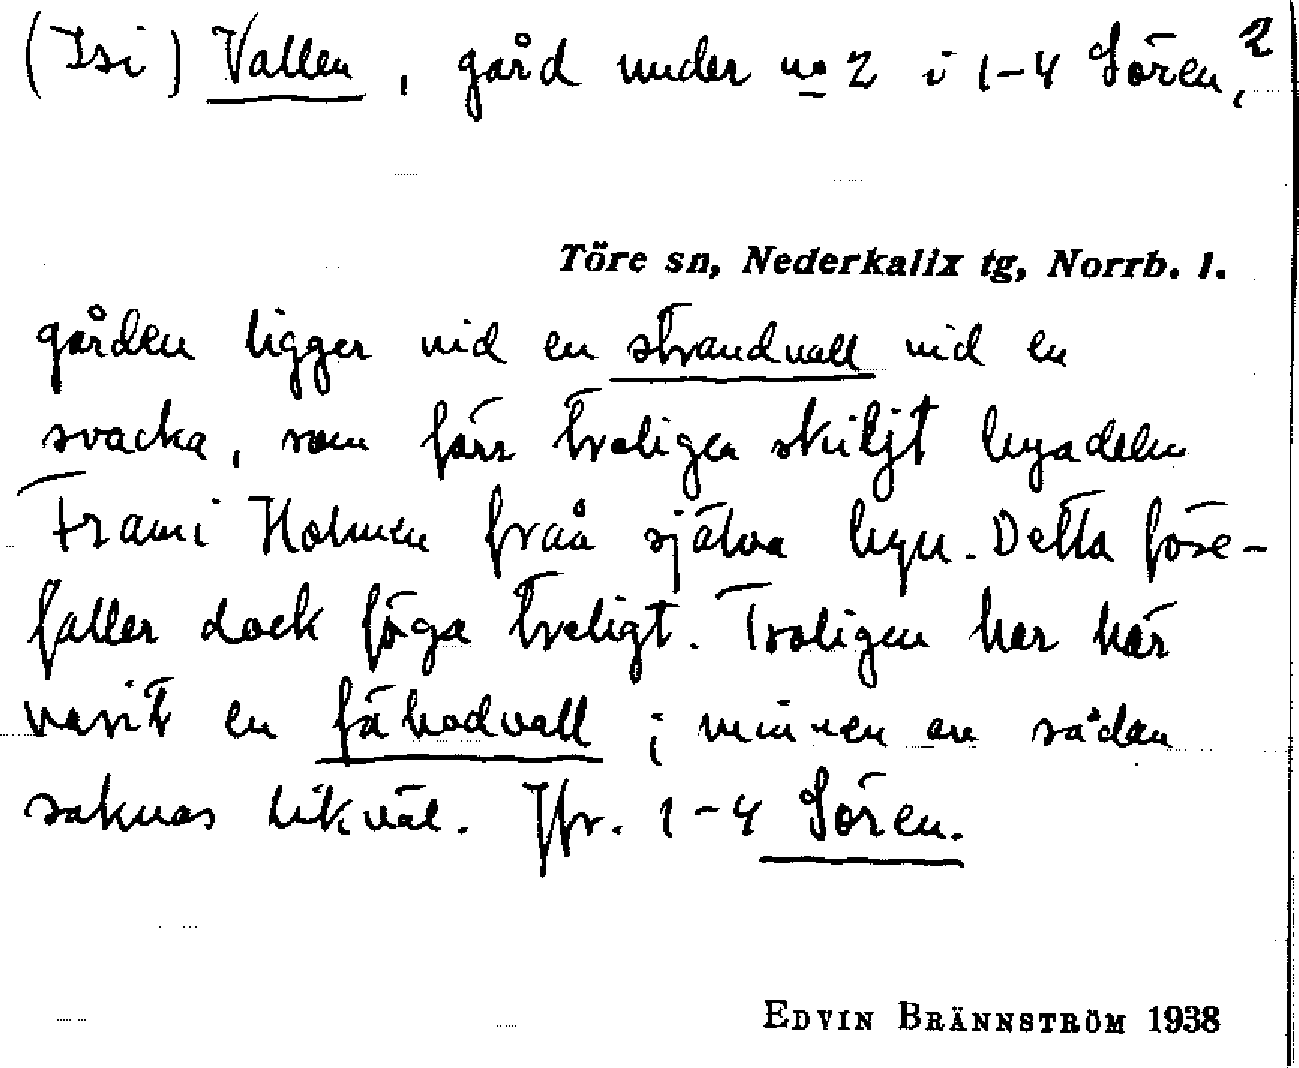 (Isi) Vallen, gård under no 2 i 1-4 Sören, 2
Töre sn, Nederkalix tg, Norrb. l.
gården ligger vid en strandvall vid en
svacka, som förr troligen skiljt byadelen
Frami Holmen från själva byn. Detta före-
faller dock föga troligt. Troligen har här
varit en fäbodvall; minnen av sådan
saknas likväl. Jfr. 1-4 Sören.
EDVIN BRÄNNSTRÖM 1938